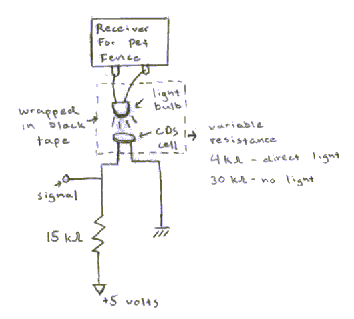 Receiver
For pet
Fence
light
bulb
wrapped
in black
tape
CDS
cell
variable
resistance
4 kΩ - direct light
30 kΩ - no light
signal
15 kΩ
+5 volts